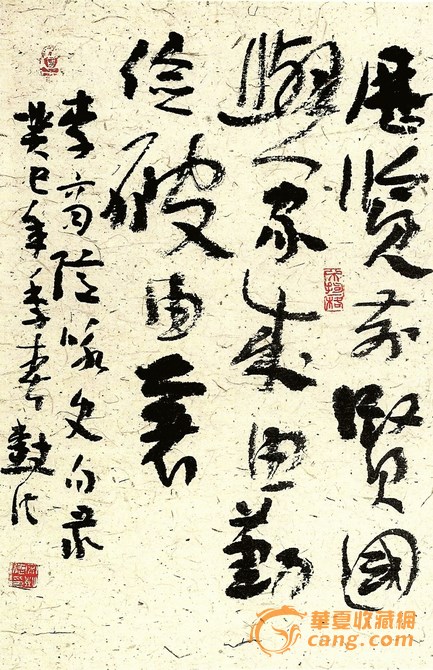 歷覽前賢國
與家成由勤
俭破由奢
李商隐咏史句录
癸巳年季春
華夏收藏網
cang.com